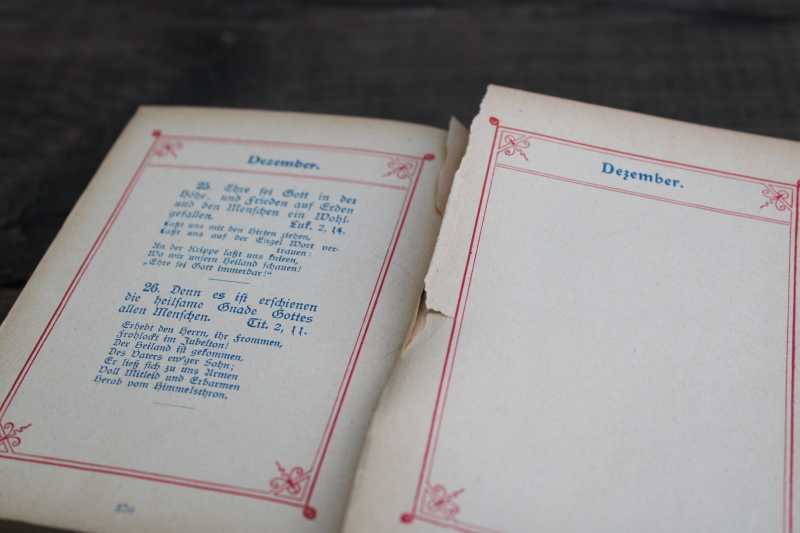 Dezember.
25. Ehre sei Gott in der
Höhe, und Frieden auf Erden
und den Menschen ein Wohl-
gefallen. Luk. 2, 14.
Laßt uns mit den Hirten ziehen,
Laßt uns auf der Engel Wort ver-
trauen:
An der Krippe laßt uns knieen,
Wo wir unsern Heiland schauen!
„Ehre sei Gott immerdar!“
26. Denn es ist erschienen
die heilsame Gnade Gottes
allen Menschen. Tit. 2, 11.
Erhebt den Herrn, ihr Frommen,
Frohlockt im Jubelton!
Der Heiland ist gekommen,
Des Vaters ew'ger Sohn;
Er ließ sich zu uns Armen
Voll Mitleid und Erbarmen
Herab vom Himmelsthron.
Dezember.